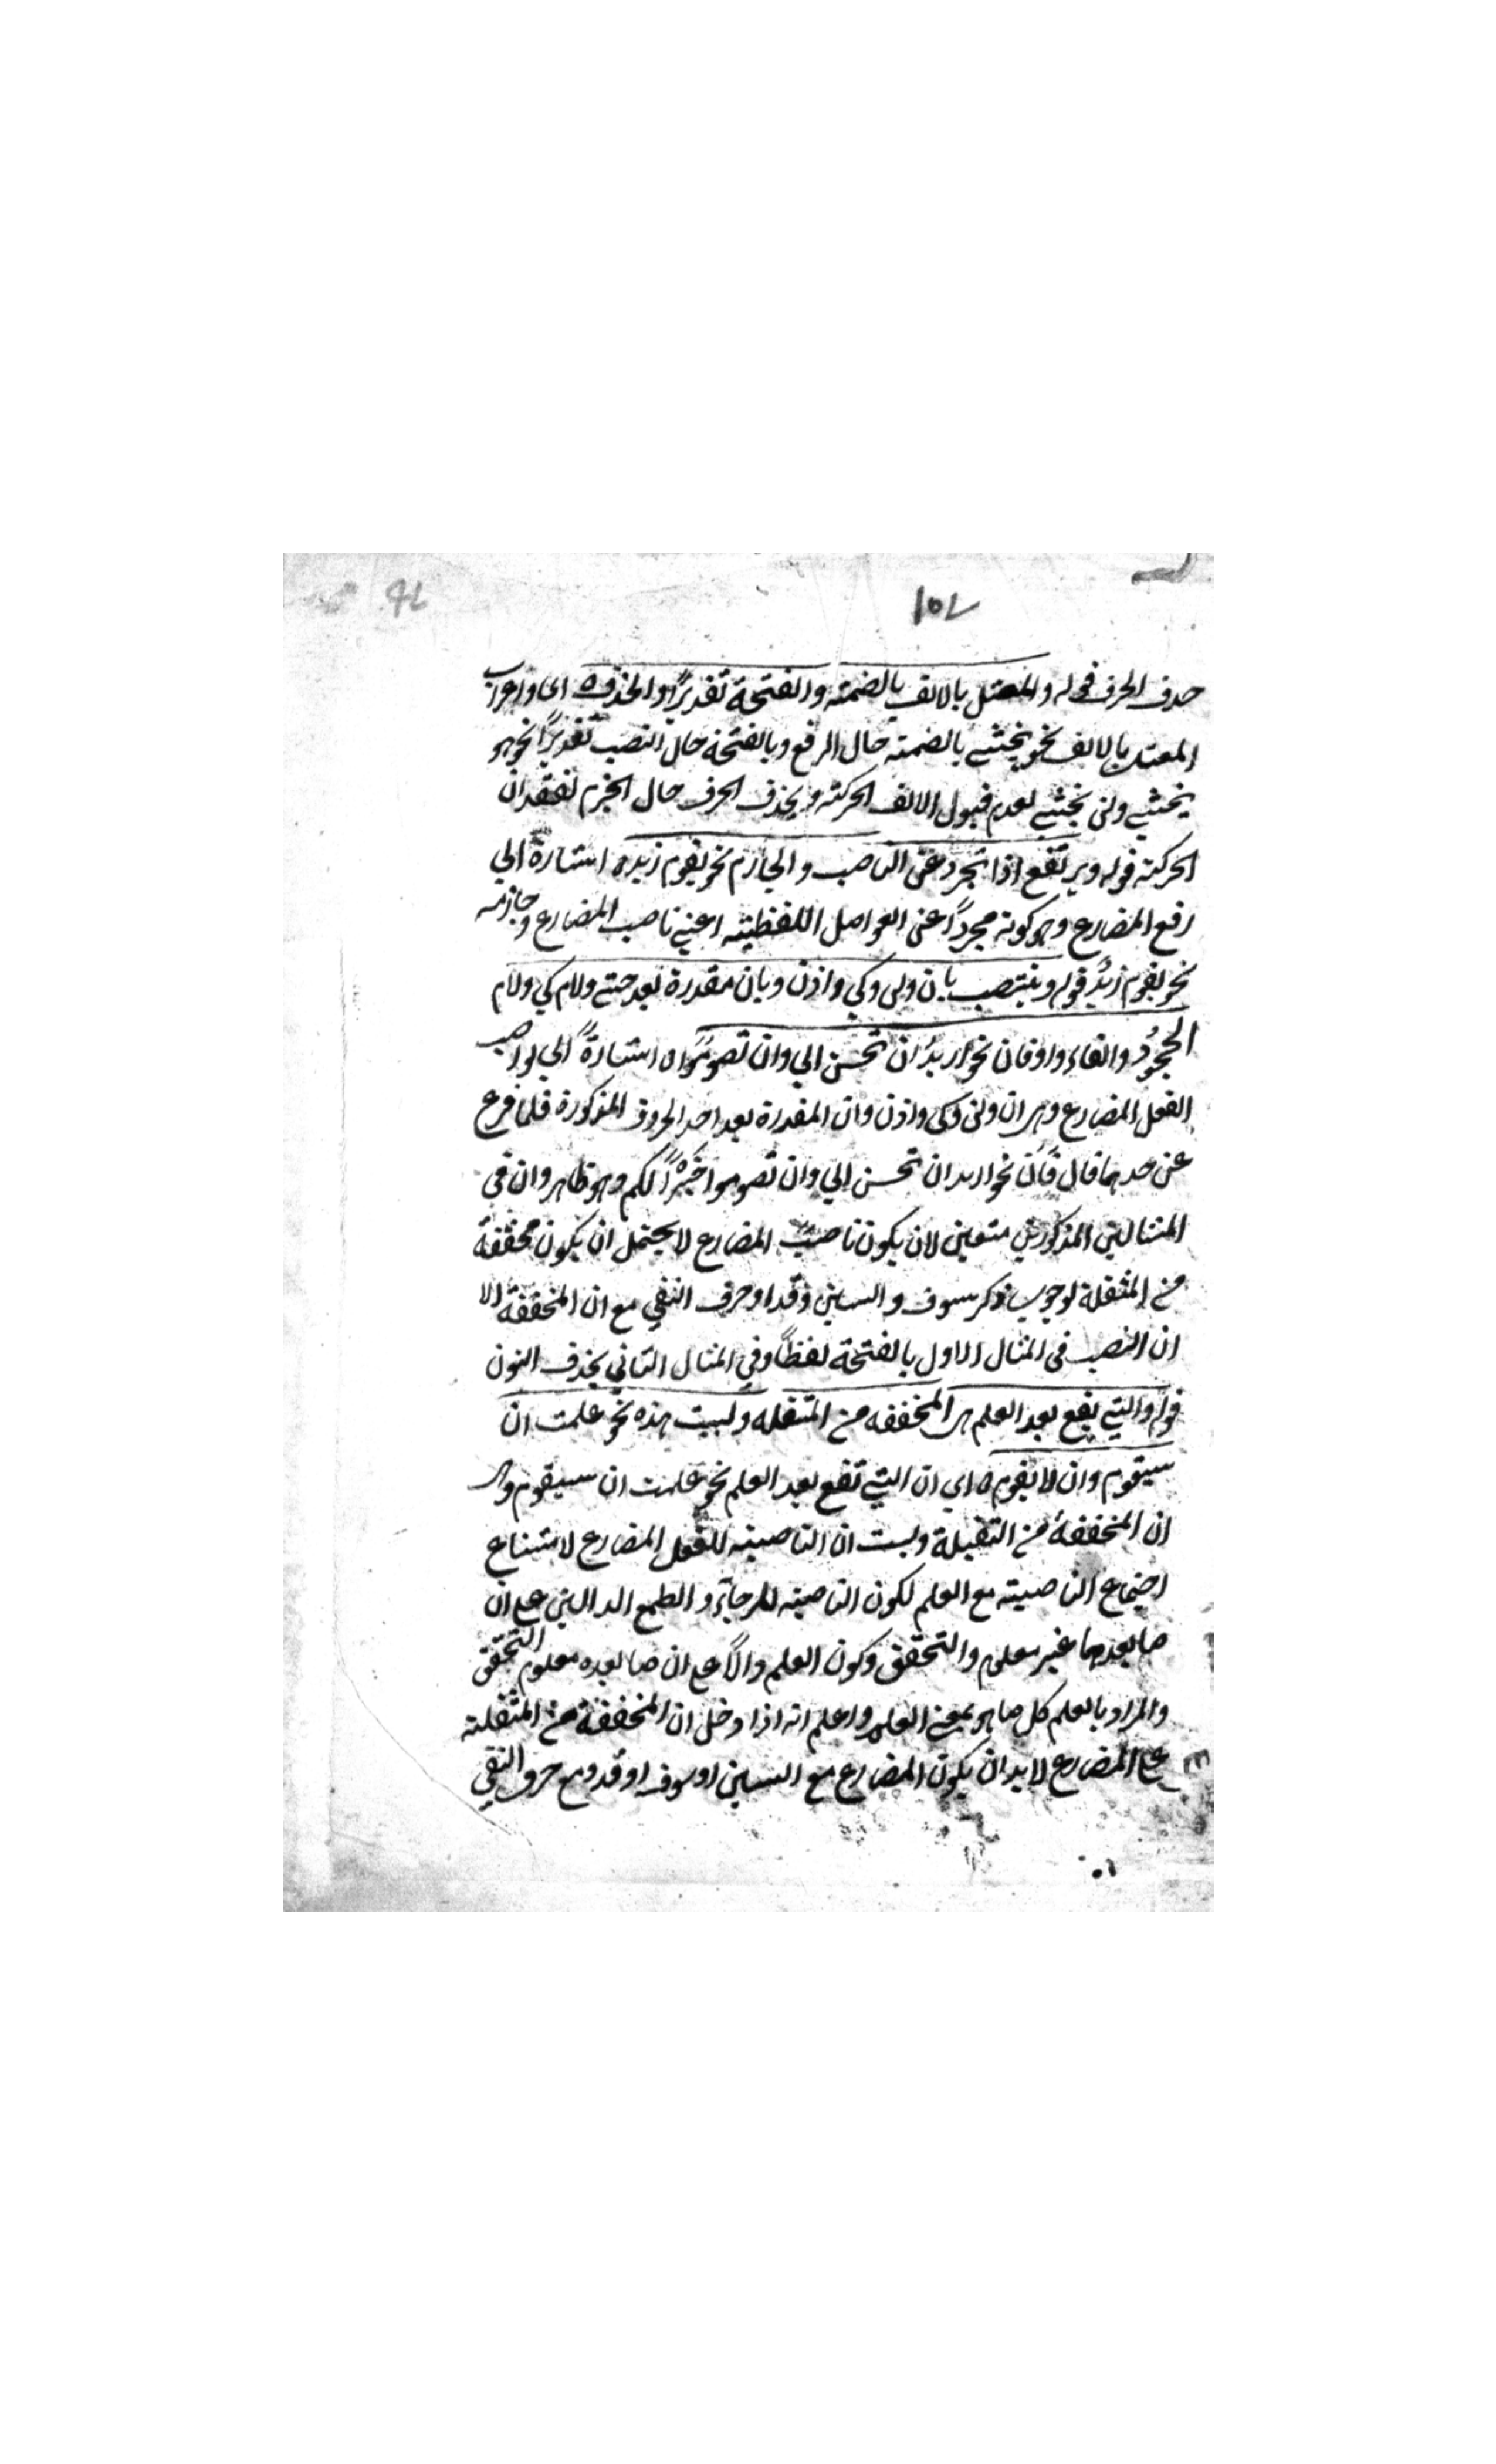 102
حذف الحرف قوله والمعتل بالالف بالضمة والفتحة تقديرًا والحذف ه اى واعراب
المعتل بالالف نحو يخشى بالضمة حال الرفع وبالفتحة حال النصب تقديرًا نحو هو
يخشى ولن يخشى لعدم قبول الالف الحركة ويحذف الحرف حال الجزم لفقدان
الحركة قوله ويرتفع اذا تجرد عن الناصب والجازم نحو يقوم زيد ه اشارة الى
رفع المضارع وهو كونه مجردًا عن العوامل اللفظية اعنى ناصب المضارع وجازمه
نحو يقوم زيدٌ قوله وينتصب بان ولن وكي واذن وبان مقدرة بعد حتى ولام كي ولام
الجحود والفاء واو فان نحو اريدُ ان تحسن الي وان تصوموا ه اشارةً الى نواصب
الفعل المضارع وهى ان ولن وكى واذن وان المقدرة بعد احد الحروف المذكورة فلما فرغ
عن عدها قال فان نحو اريد ان تحسن الي وان تصوموا خيرًا لكم وهو ظاهر وان فى
المثالين المذكورين متعين لان يكون ناصب المضارع لا يحتمل ان يكون مخففة
من المثقلة لوجوب ذكر سوف والسين وقد او حرف النفي مع ان المخففة الا
ان النصب فى المثال الاول بالفتحة لفظًا وفي المثال الثاني بحذف النون
قوله والتي يقع بعد العلم هى المخففه من المثقله وليست هذه نحو علمت ان
سيقوم وان لا يقوم ه اي ان التي تقع بعد العلم نحو علمت ان سيقوم هى
ان المخففة من الثقيلة وليست ان الناصبة للفعل المضارع لامتناع
اجتماع الناصبة مع العلم لكون الناصبة للرجاء والطمع الدالين على ان
ما بعدهما غير معلوم والتحقق وكون العلم دالًا على ان ما بعده معلوم التحقق
والمراد بالعلم كل ما هو بمعنى العلم واعلم انه اذا دخل ان المخففة من المثقلة
على المضارع لا بد ان يكون المضارع مع السين او سوف او قد ومع حرف النفي